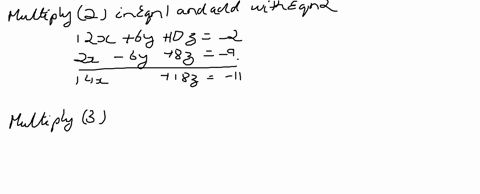 Multiply (2) in Eqn 1 and add with Eqn 2
12x + 6y + 10z = -2
2x - 6y + 8z = -9.
14x + 18z = -11
Multiply (3)